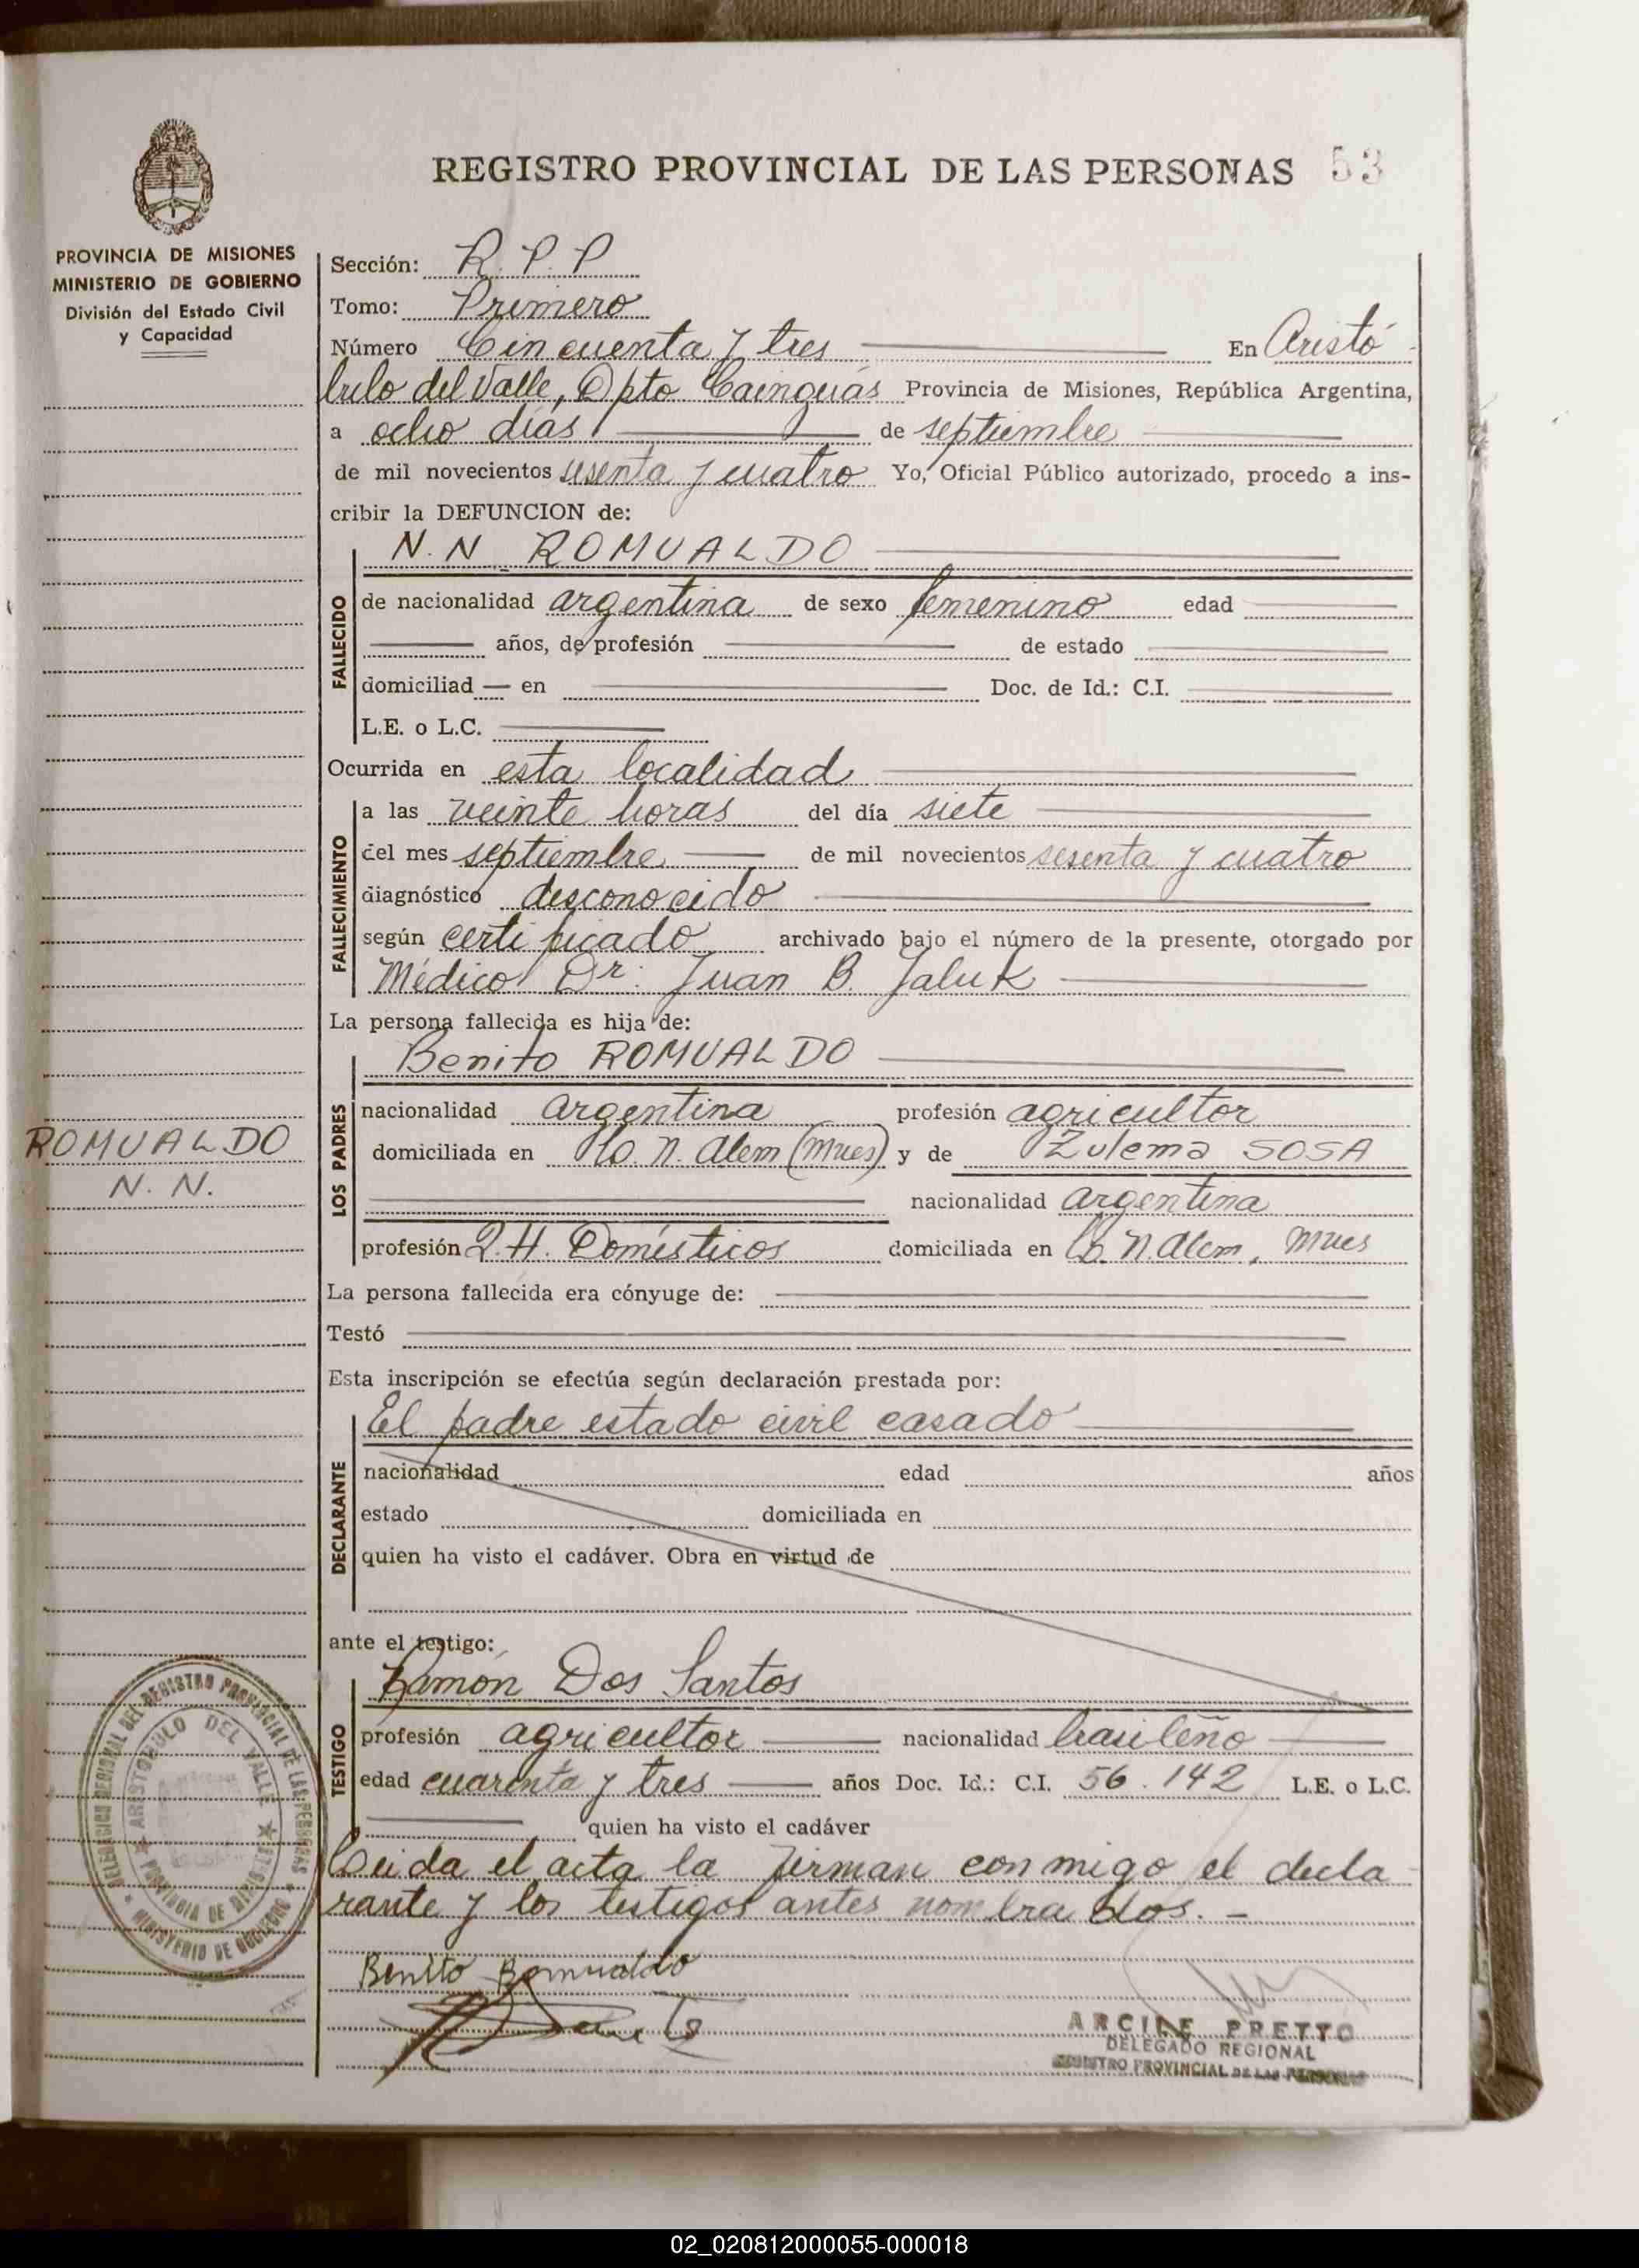 REGISTRO PROVINCIAL DE LAS PERSONAS 53
PROVINCIA DE MISIONES
MINISTERIO DE GOBIERNO
División del Estado Civil
y Capacidad
Sección: R. P. P
Tomo: Primero
Número Cincuenta y tres En Aristó
bulo del Valle, Dpto Cainguás Provincia de Misiones, República Argentina,
a ocho días de septiembre
de mil novecientos sesenta y cuatro Yo, Oficial Público autorizado, procedo a ins-
cribir la DEFUNCION de:
N. N ROMUALDO
FALLECIDO
de nacionalidad argentina de sexo femenino edad
años, de profesión de estado
domiciliad — en Doc. de Id.: C.I.
L.E. o L.C.
Ocurrida en esta localidad
FALLECIMIENTO
a las veinte horas del día siete
del mes septiembre de mil novecientos sesenta y cuatro
diagnóstico desconocido
según certificado archivado bajo el número de la presente, otorgado por
Médico Dr. Juan B. Jaluk
La persona fallecida es hija de:
Benito ROMUALDO
LOS PADRES
nacionalidad argentina profesión agricultor
domiciliada en N. Alem (Mnes) y de Zulema SOSA
nacionalidad argentina
profesión Q. H. Domésticos domiciliada en N. Alem, Mnes
ROMUALDO
N. N.
La persona fallecida era cónyuge de:
Testó
Esta inscripción se efectúa según declaración prestada por:
El padre estado civil casado
DECLARANTE
nacionalidad edad años
estado domiciliada en
quien ha visto el cadáver. Obra en virtud de
ante el testigo:
Ramón Dos Santos
TESTIGO
profesión agricultor nacionalidad brasileño
edad cuarenta y tres años Doc. Id.: C.I. 56.142 L.E. o L.C.
quien ha visto el cadáver
Leida el acta la firman conmigo el decla
rante y los testigos antes nombrados. -
Benito Romualdo
DELEGACION REGIONAL DEL REGISTRO PROVINCIAL DE LAS PERSONAS
MINISTERIO DE GOBIERNO
ARISTOBULO DEL VALLE
PROVINCIA DE MISIONES
ARCILE PRETTO
DELEGADO REGIONAL
REGISTRO PROVINCIAL DE LAS PERSONAS
02_020812000055-000018